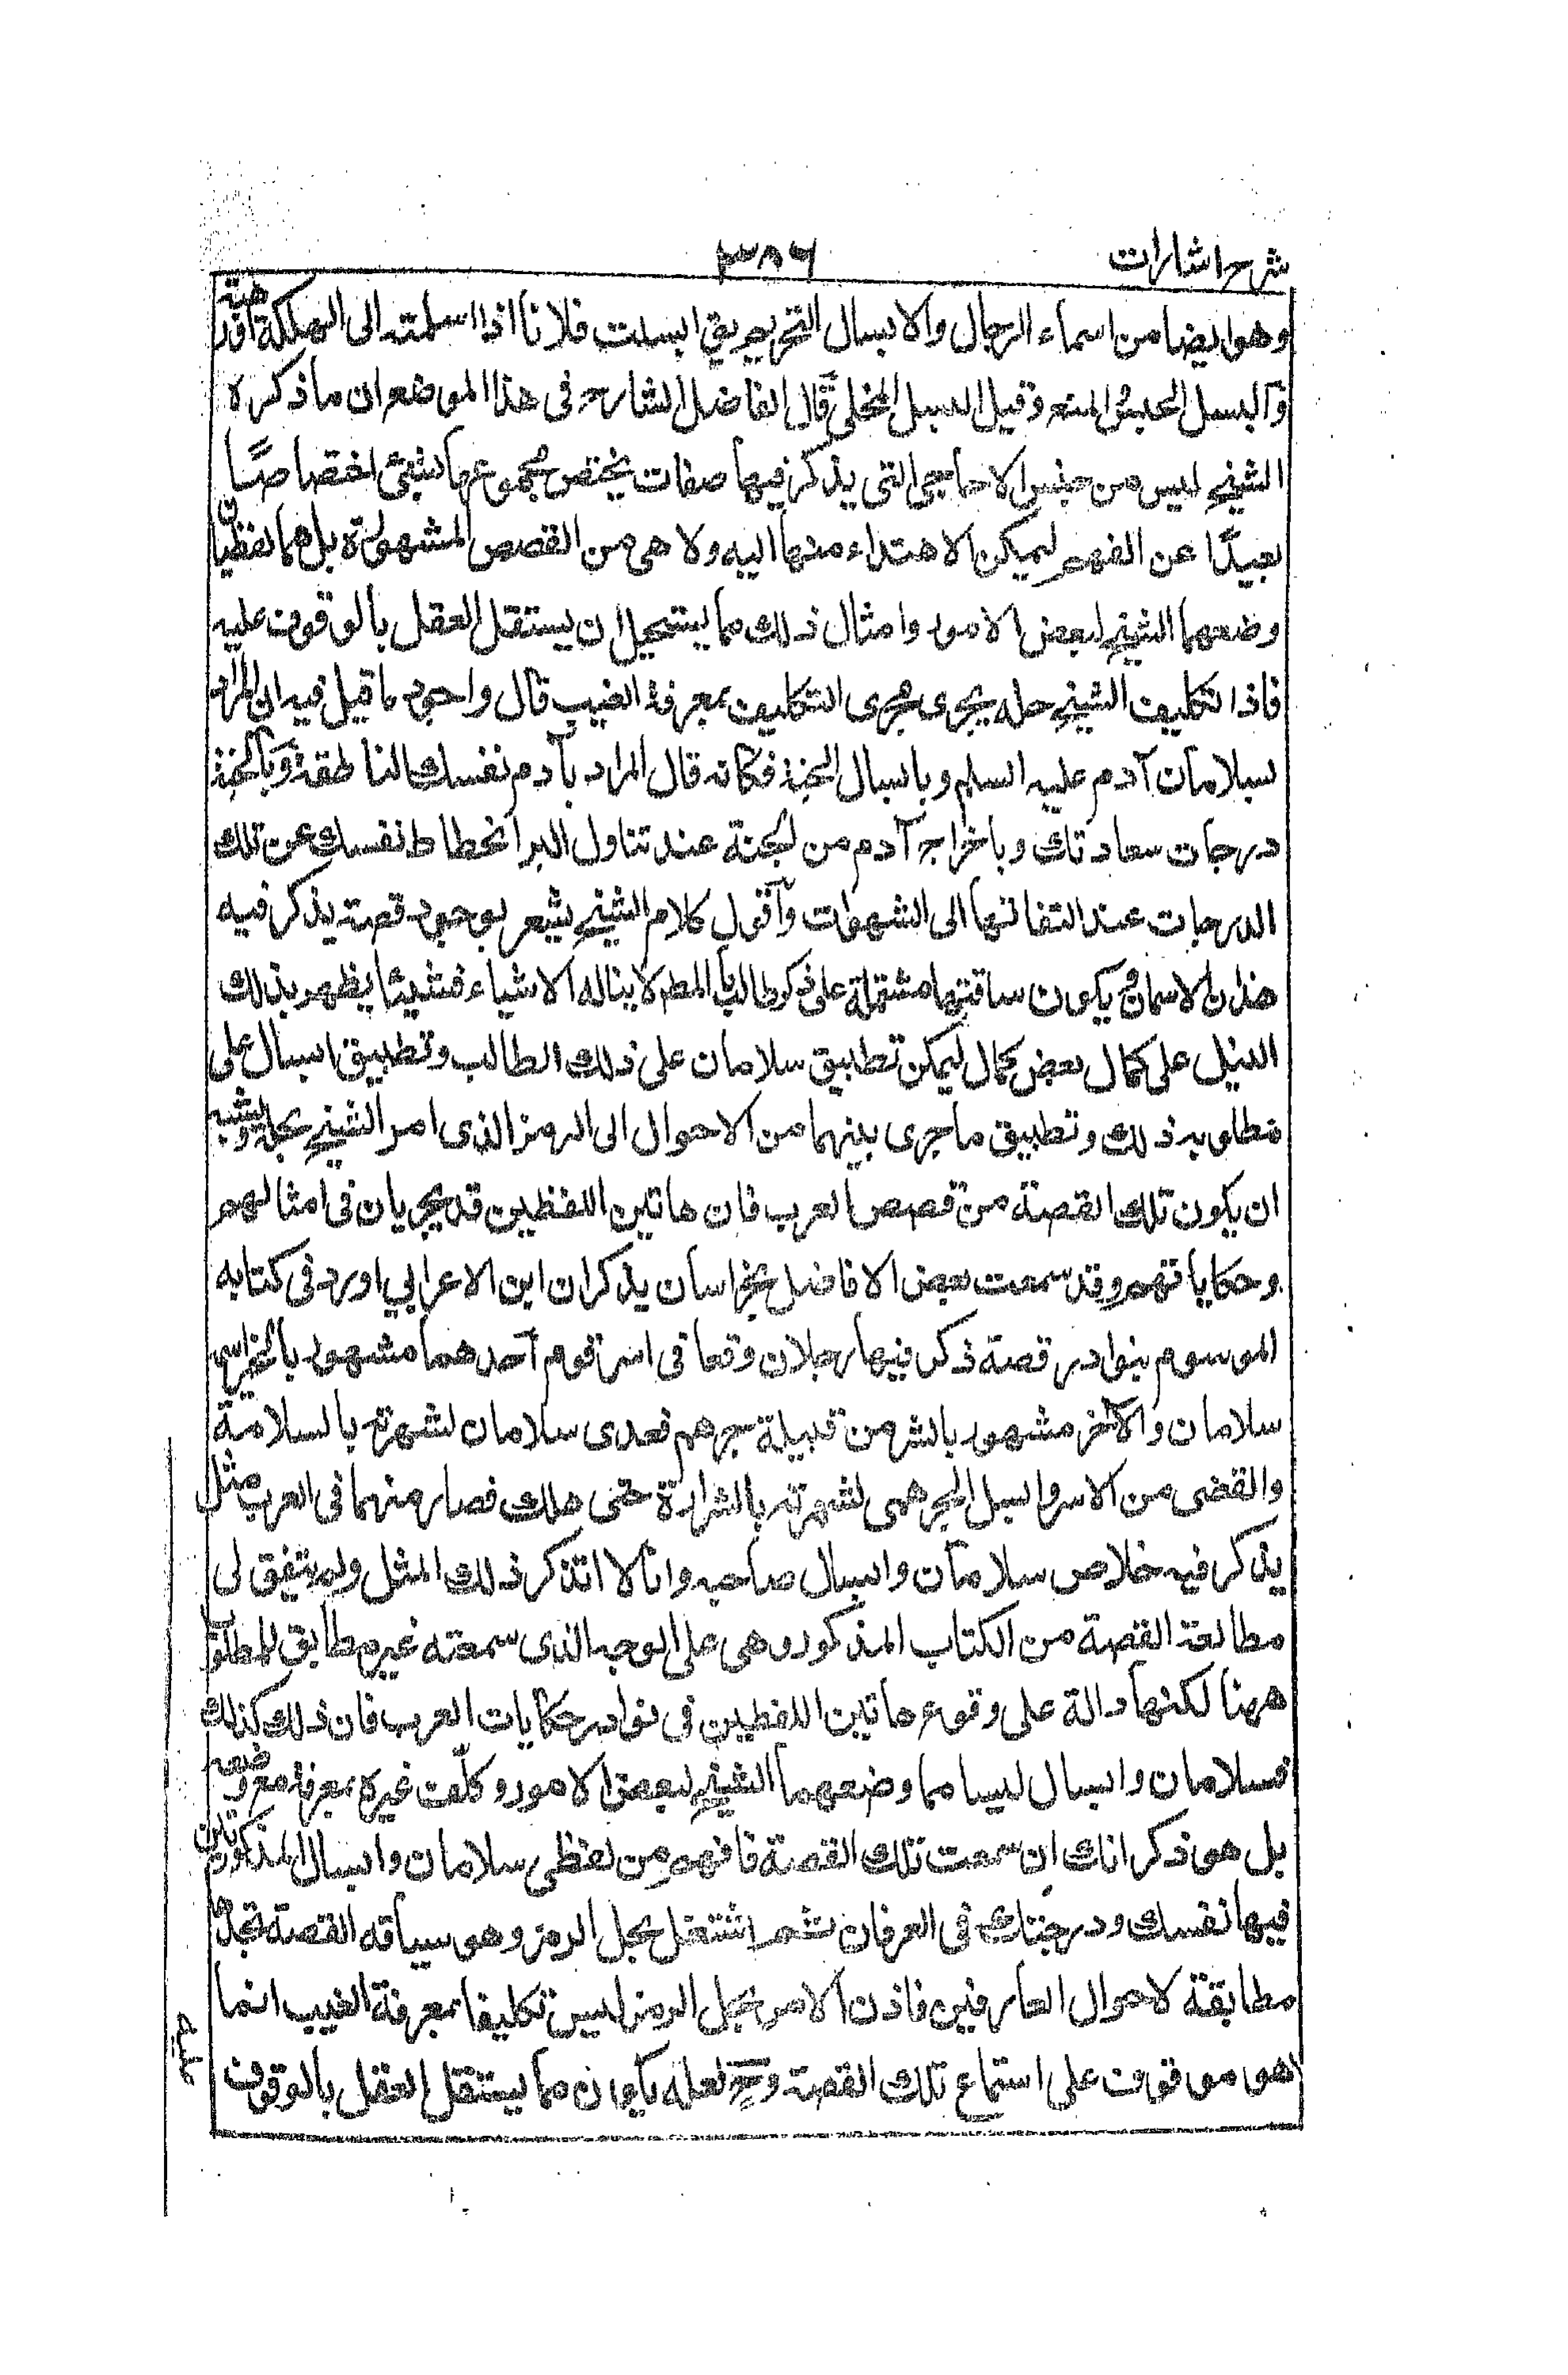 شرح اشارات
۳۸۶
وهو ايضا من اسماء الرجال والابسال التحريم يقال ابسلت فلانا اذا اسلمته الى الهلكة او رهنته
والبسل الحبس والمنع وقيل البسل المخلى قال الفاضل الشارح فى هذا الموضع ان ما ذكره
الشيخ ليس من جنس الاحاجى التى يذكر فيها صفات يختص مجموعها بشئ اختصاصًا
بعيدًا عن الفهم ليمكن الاهتداء منها اليه ولا هى من القصص المشهورة بل هما لفظتان
وضعهما الشيخ لبعض الامور وامثال ذلك مما يستحيل ان يستقل العقل بالوقوف عليه
فاذا تكليف الشيخ حله يجرى مجرى التكليف بمعرفة الغيب قال واجود ما قيل فيه ان المراد
بسلامان آدم عليه السلم وبابسال الجنة فكانه قال المراد بآدم نفسك الناطقة وبالجنة
درجات سعادتك وباخراج آدم من الجنة عند تناول البر انحطاط نفسك عن تلك
الدرجات عند التفاتها الى الشهوات واقول كلام الشيخ يشعر بوجود قصة يذكر فيه
هذان الاسمان يكون سياقتها مشتملة على ذكر طالب ما لمطلوب لا يناله الا شيئا فشيئا يظهر بذلك
النيل على كمال بعد كمال ليمكن تطبيق سلامان على ذلك الطالب وتطبيق ابسال على
مطلوبه ذلك وتطبيق ما جرى بينهما من الاحوال الى الرمز الذى امر الشيخ بحله ويشبه
ان يكون تلك القصة من قصص العرب فان هاتين اللفظين قد يجريان فى امثالهم
وحكاياتهم وقد سمعت بعض الافاضل بخراسان يذكر ان ابن الاعرابي اورد فى كتابه
الموسوم بنوادر قصة ذكر فيها رجلان وقعا فى اسر قوم احدهما مشهور بالخير اسمه
سلامان والآخر مشهور بالشر من قبيلة جرهم فعدى سلامان لشهرته بالسلامة
وانقضى من الاسر وابسل الجرهمى لشهرته بالشرارة حتى هلك فصار منهما فى العرب مثل
يذكر فيه خلاص سلامان وابسال صاحبه وانا لا اتذكر ذلك المثل ولم يتفق لى
مطالعة القصة من الكتاب المذكور وهى على الوجه الذى سمعته غير مطابق للمطلوب
ههنا لكنها دالة على وقوع هاتين اللفظين فى نوادر حكايات العرب فان ذلك كذلك
فسلامان وابسال ليسا مما وضعهما الشيخ لبعض الامور وكلّف غيره بمعرفة ما وضعه
بل هو ذكر انك ان سمعت تلك القصة فافهم من لفظى سلامان وابسال المذكورتين
فيها نفسك ودرجتك فى العرفان ثم اشتغل بحل الرمز وهو سياقه القصة تجدها
مطابقة لاحوال العارفين فاذن الامر بحل الرمز ليس تكليفا بمعرفة الغيب انما
هو موقوف على استماع تلك القصة وح لعله يكون مما يستقل العقل بالوقوف